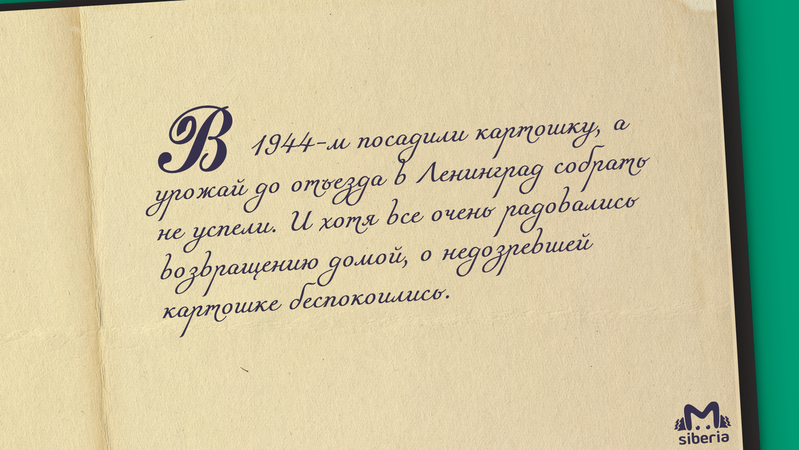 В 1944-м посадили картошку, а
урожай до отъезда в Ленинград собрать
не успели. И хотя все очень радовались
возвращению домой, о недозревшей
картошке беспокоились.
siberia